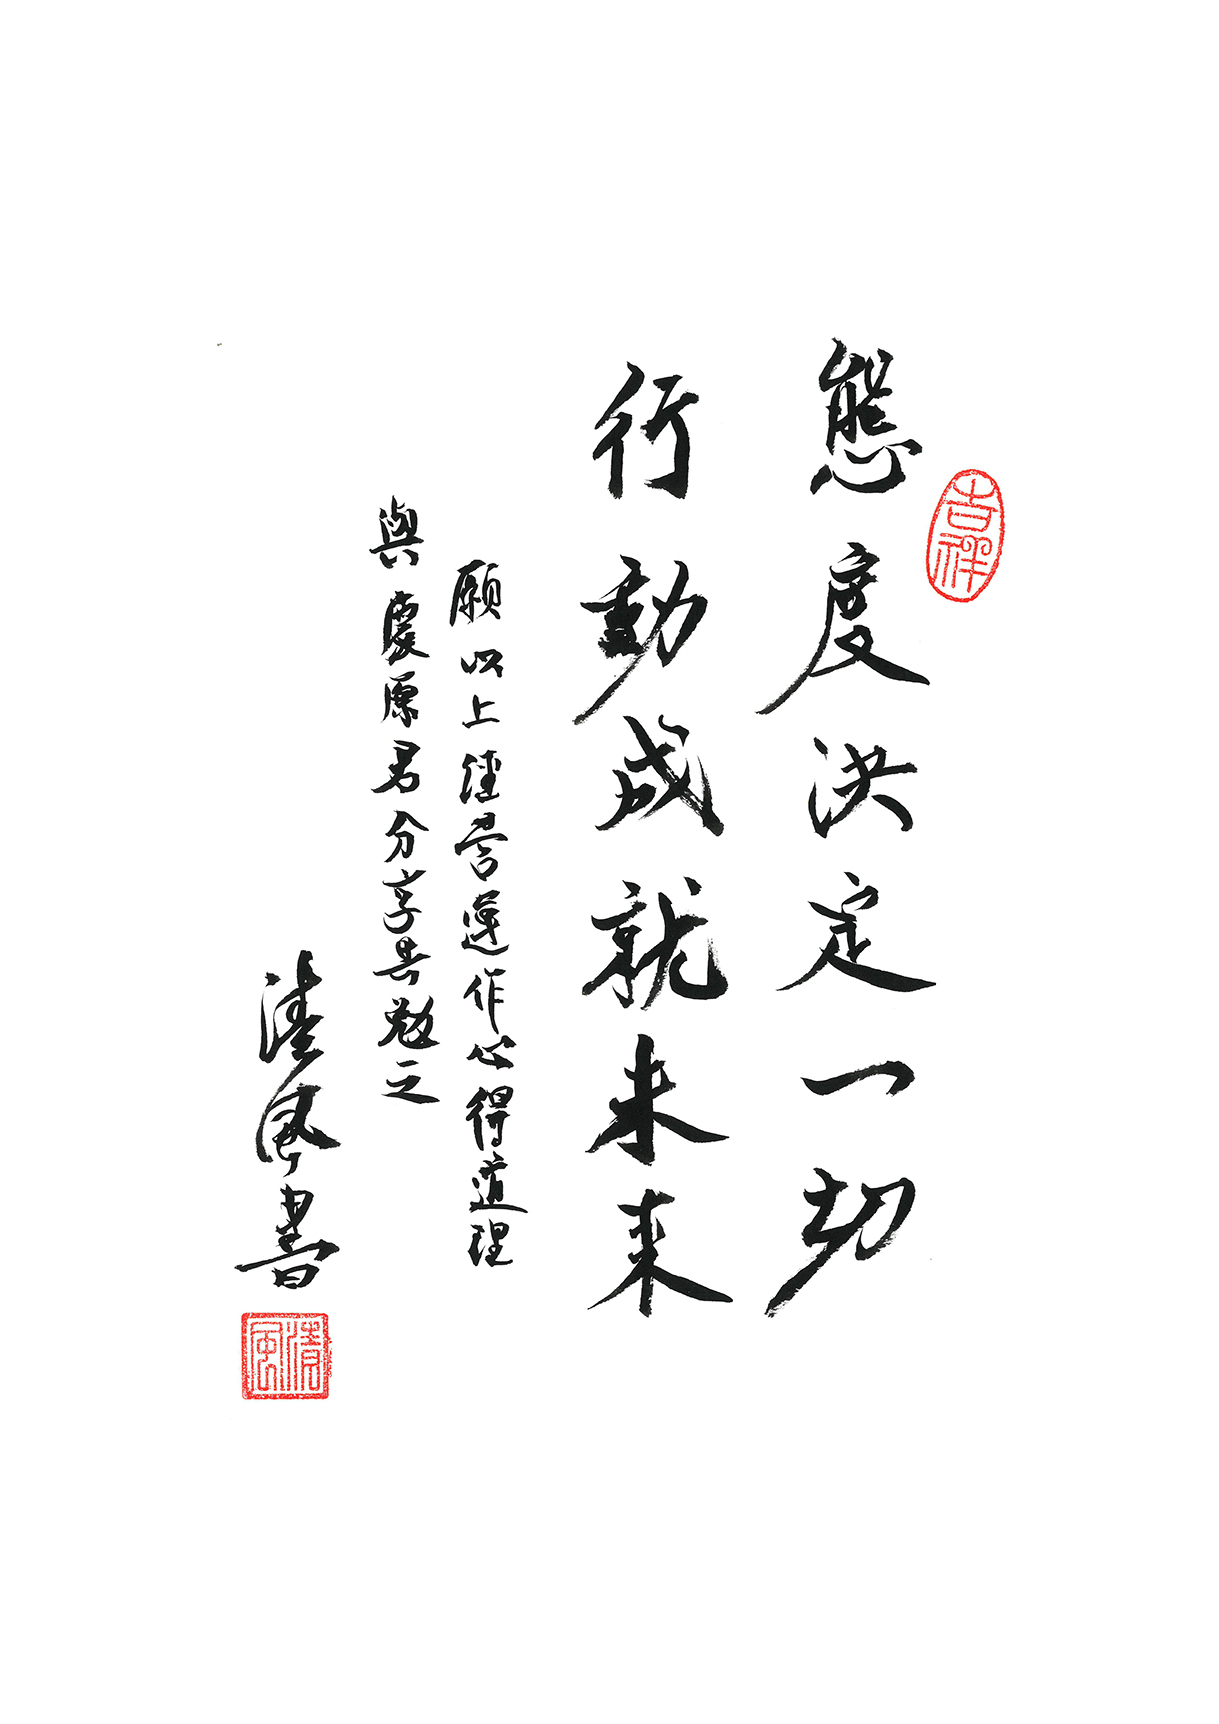 吉祥
態度決定一切
行動成就未來
願以上經營運作心得道理
與慶原君分享共勉之
清風書
清風